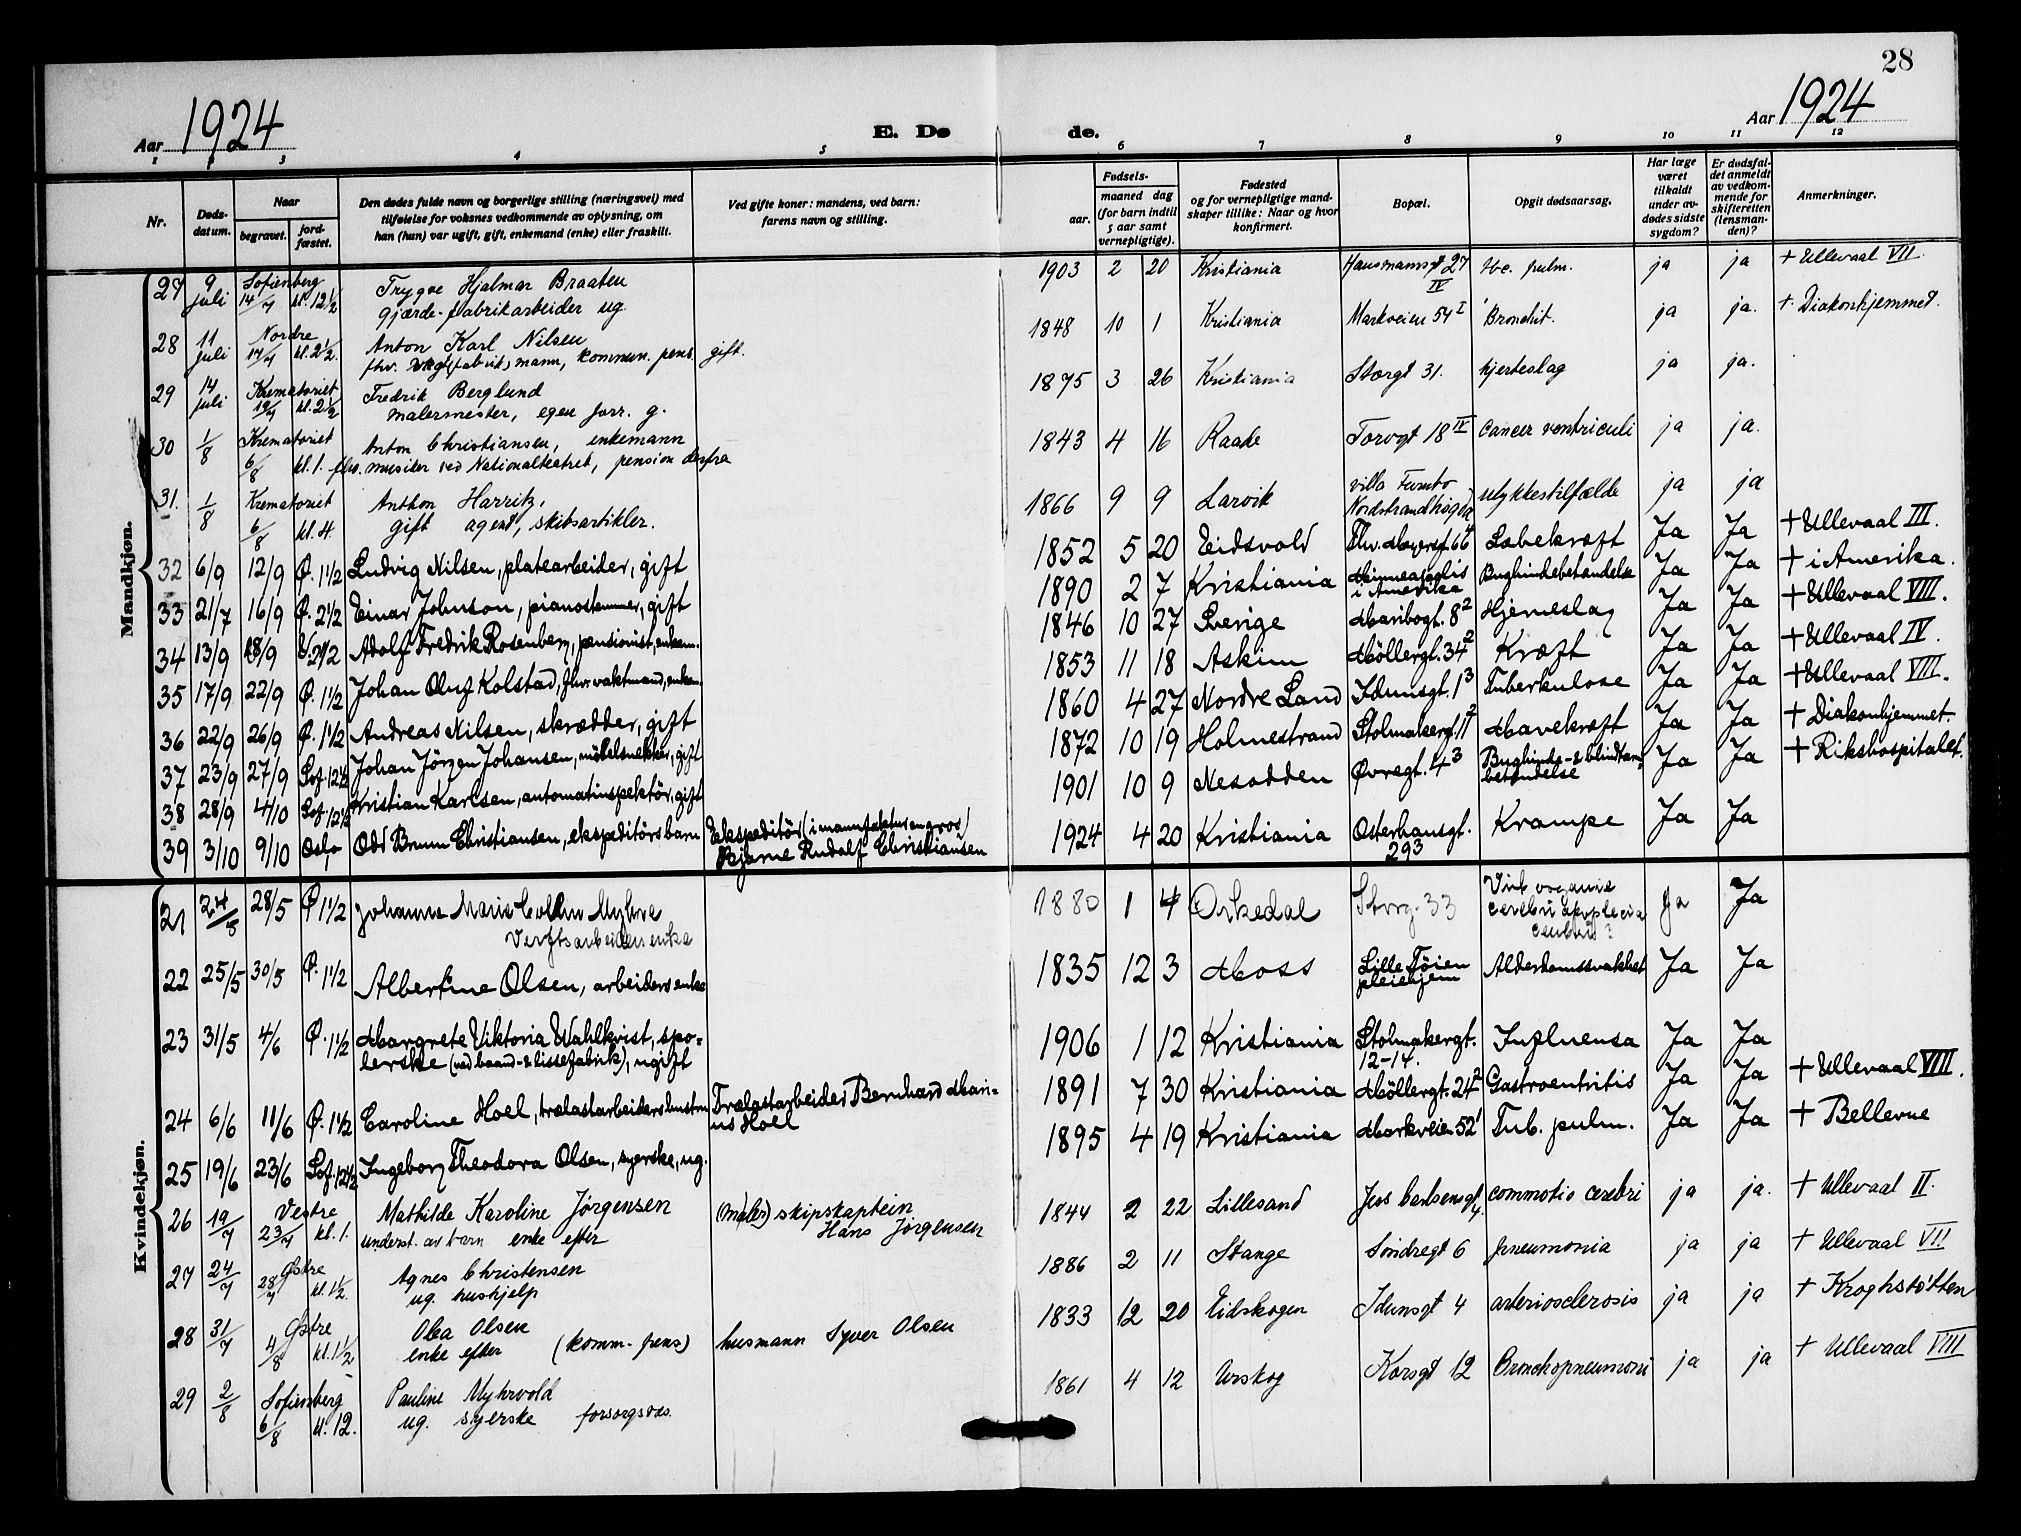 28
Aar 1924
E. Dø
de.
Aar 1924
1 2 3 4 5 6 7 8 9 10 11 12
Nr.
Døds-
datum.
Naar
begravet.
jord-
fæstet.
Den dødes fulde navn og borgerlige stilling (næringsvei) med
tilføielse for voksnes vedkommende av oplysning, om
han (hun) var ugift, gift, enkemand (enke) eller fraskilt.
Ved gifte koner: mandens, ved barn:
farens navn og stilling.
Fødsels-
aar.
maaned dag
(for barn indtil
5 aar samt
vernepligtige).
Fødested
og for vernepligtige mand-
skaper tillike: Naar og hvor
konfirmert.
Bopæl.
Opgit dødsaarsag.
Har læge
været
tilkaldt
under av-
dødes sidste
sygdom?
Er dødsfal-
det anmeldt
av vedkom-
mende for
skifteretten
(lensman-
den)?
Anmerkninger.
Mandkjøn.
27 9 juli Sofienberg 14/7 kl. 12 1/2 Trygve Hjalmar Braaten
gjærde-fabrikarbeider ug. 1903 2 20 Kristiania Hausmannsgt 27 IV tbc. pulm. ja ja + Ullevaal VII.
28 11 juli Nordre 17/7 kl. 2 1/2. Anton Karl Nilsen
fhv. mann, kommun. pens. gift. 1848 10 1 Kristiania Markveien 54 I Bronchit. ja ja. + Diakonhjemmet.
29 14 juli Krematoriet 19/7 kl. 2 1/2 Fredrik Berglund
malermester, egen forr. g. 1875 3 26 Kristiania Storgt 31. hjerteslag ja ja.
30 1/8 Krematoriet 6/8 kl. 1. Anton Christiansen, enkemann
fhv. musiker ved Nationalteatret, pension derfra 1843 4 16 Raade Torvgt 18 IV cancer ventriculi ja ja.
31. 1/8 Krematoriet 6/8 kl. 4. Anthon Harritz,
gift agent, skibsartikler. 1866 9 9 Larvik villa Furubo
Nordstrandhøgda ulykkestilfælde ja ja
32 6/9 12/9 Ø. 1 1/2 Ludvig Nilsen, platearbeider, gift 1852 5 20 Eidsvold Thv. Meyersgt. 66 4 Læbekræft Ja Ja + Ullevaal III.
33 21/7 16/9 Ø. 2 1/2 Einar Johnson, pianostemmer, gift 1890 2 7 Kristiania Minneapolis
i Amerika Bughindebetændelse Ja Ja + i Amerika.
34 13/9 18/9 V. 2 1/2 Adolf Fredrik Rosenberg, pensionist, enkem. 1846 10 27 Sverige Maribogt. 8 2 Hjerneslag Ja Ja + Ullevaal VIII.
35 17/9 22/9 Ø. 1 1/2 Johan Oluf Kolstad, fhv. vaktmand, enkem. 1853 11 18 Askim Möllergt. 34 2 Kræft Ja Ja + Ullevaal IV.
36 22/9 26/9 Ø. 1 1/2 Andreas Nilsen, skrædder, gift 1860 4 27 Nordre Land Idunsgt. 1 3 Tuberkulose Ja Ja + Ullevaal VIII.
37 23/9 27/9 Sof. 12 1/2 Johan Jörgen Johansen, möbelsnekker, gift 1872 10 19 Holmestrand Stolmakergt. 11 2 Mavekræft Ja Ja + Diakonhjemmet.
38 28/9 4/10 Sof. 12 1/2 Kristian Karlsen, automatinspektör, gift 1901 10 9 Nesodden Øvregt. 4 3 Bughinde- & blindtarm-
betændelse Ja Ja + Rikshospitalet.
39 3/10 9/10 Oslo Odd Bruun Christiansen, ekspeditörs barn Ekspeditör (i manufaktur en gros)
Bjarne Rudolf Christiansen 1924 4 20 Kristiania Osterhausgt.
29 3 Krampe Ja Ja
Kvindekjøn.
21 24/5 28/5 Ø 1 1/2 Johanne Marie Myhre
Verftsarbeiders enke 1880 1 4 Orkedal Storg. 33 Vit. organic
cerebri apoplecia Ja Ja
22 25/5 30/5 Ø. 1 1/2 Albertine Olsen, arbeiders enke 1835 12 3 Moss Lille Töien
pleiehjem Alderdomssvakhet Ja Ja
23 31/5 4/6 Ø. 1 1/2 Margrete Viktoria Wahlkvist, spo-
lerske (ved baand- & lissefabrik), ugift 1906 1 12 Kristiania Stolmakergt.
12-14. Influensa Ja Ja
24 6/6 11/6 Ø. 1 1/2 Caroline Hoel, trælastarbeiders hustru Trælastarbeider Bernhard Mari-
us Hoel 1891 7 30 Kristiania Möllergt. 24 2 Gastroentritis Ja Ja + Ullevaal VIII.
25 19/6 23/6 Sof. 12 1/2 Ingeborg Theodora Olsen, syerske, ug. 1895 4 19 Kristiania Markveien 52 1 Tub. pulm. Ja Ja + Bellevue
26 19/7 Vestre 23/7 kl. 1. Mathilde Karoline Jørgensen
underst. av barn enke efter skipskaptein
Hans Jørgensen 1844 2 22 Lillesand Jess Carlsensgt 4. commotio cerebri ja ja. + Ullevaal II.
27 24/7 Østre 28/7 kl. 1 1/2. Agnes Christensen
ug. hushjelp 1886 2 11 Stange Søndregt 6 pneumonia ja ja + Ullevaal VII
28 31/7 Østre 4/8 kl. 1 1/2 Olea Olsen
enke efter (komm. pens) husmann Syver Olsen 1833 12 20 Eidskogen Idunsgt 4 arteriosclerosis ja ja + Kroghstøtten
29 2/8 Sofienberg 6/8 kl. 12. Pauline Myhrvold
ug. syerske forsorgsvæs. 1861 4 12 Urskog Korsgt 12 Bronchopneumoni ja ja + Ullevaal VIII